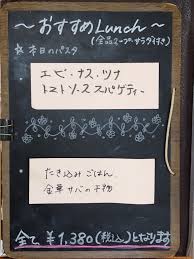 ～おすすめLunch～
(全品スープ・サラダ付き)
☆ 本日のパスタ
エビ・ナス・ツナ
トマトソーススパゲティー
たき込みごはん
金華サバの干物
全て¥1,380(税込)となります